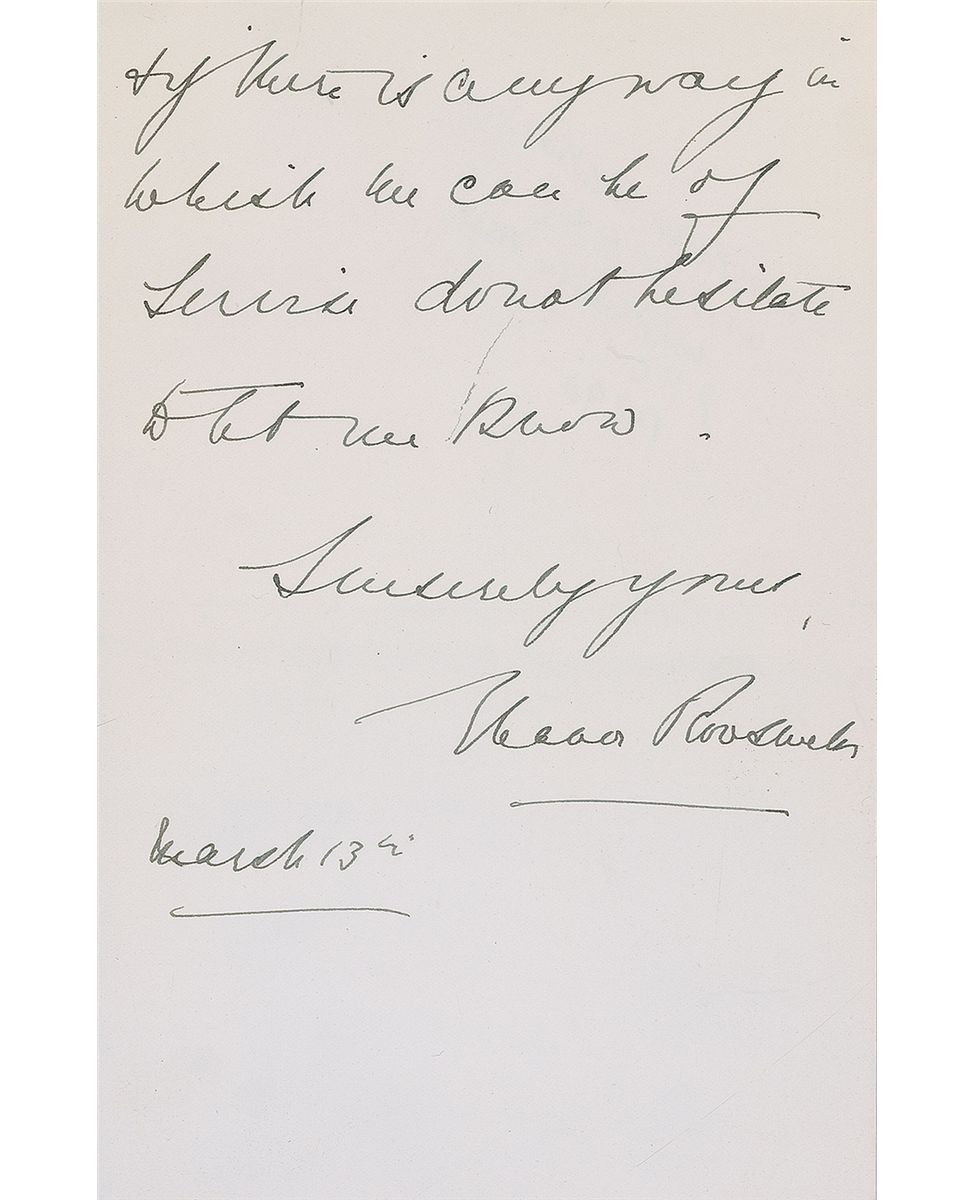 & if there is any way in
which we can be of
service do not hesitate
to let me know.
Sincerely yours,
Eleanor Roosevelt
March 13th